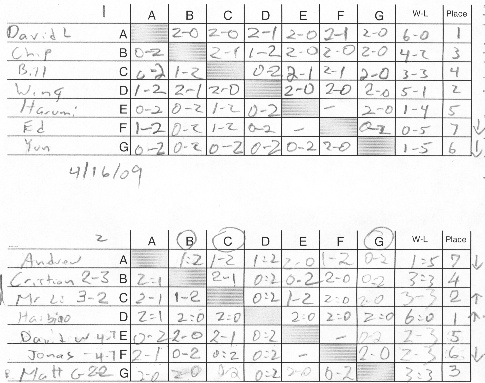 1 A B C D E F G W-L Place
David L A 2-0 2-0 2-1 2-0 2-1 2-0 6-0 1
Chip B 0-2 2-1 1-2 2-0 2-0 2-0 4-2 3
Bill C 0-2 1-2 0-2 2-1 2-1 2-0 3-3 4
Wing D 1-2 2-1 2-0 2-0 2-0 2-0 5-1 2
Harumi E 0-2 0-2 1-2 0-2 - 2-0 1-4 5
Ed F 1-2 0-2 1-2 0-2 - 0-2 0-5 7 ↓
Yun G 0-2 0-2 0-2 0-2 0-2 2-0 1-5 6 ↓
4/16/09
2 A B C D E F G W-L Place
Andrew A 1:2 1-2 1:2 2-0 1-2 0-2 1:5 7 ↓
Cristian 2-3 B 2:1 2-1 0:2 0-2 2-0 0:2 3:3 4
Mr Li 3-2 C 2-1 1-2 0:2 1-2 2:0 3-3 2 ↑
Haibiao D 2:1 2:0 2:0 2:0 2:0 2:0 6:0 1 ↑
David W 4-7 E 0-2 2-0 2-1 0:2 - 2-3 5
Jonas -4-7 F 2-1 0-2 0:2 0:2 - 2-0 2-3 6 ↓
Matt G 22 G 2-0 0:2 2-0 0-2 3:3 3